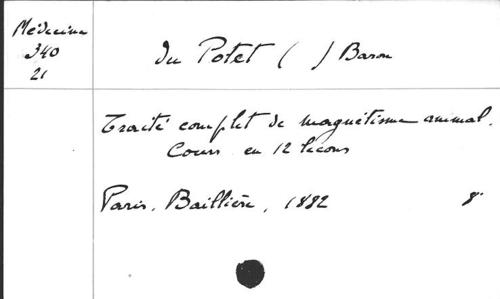 Médecine
340
21
du Potet ( ) Baron
Traité complet de magnétisme animal.
Cours en 12 leçons
Paris, Baillière, 1882 8°